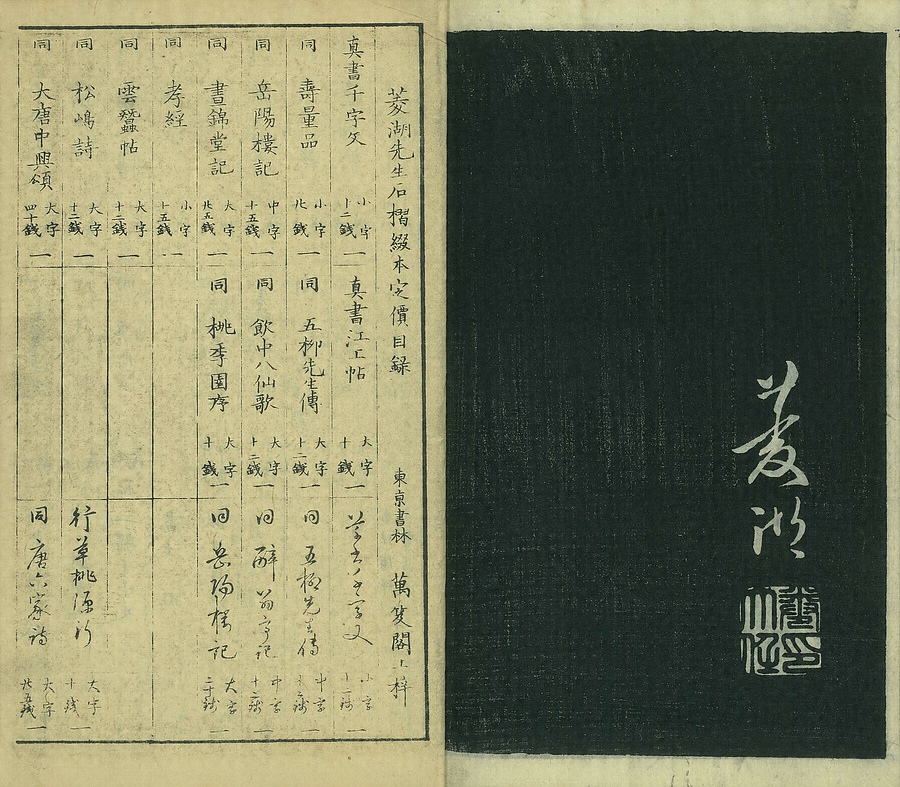 菱湖
卷大任印
菱湖先生石摺綴本定價目録 東京書林 萬笈閣上梓
真書千字文 小字十二錢 一
同 壽量品 小字廿錢 一
同 岳陽樓記 中字十五錢 一
同 晝錦堂記 大字廿五錢 一
同 孝經 小字十五錢 一
同 雲蠶帖 大字十二錢 一
同 松嶋詩 大字十二錢 一
同 大唐中興頌 大字四十錢 一
真書江上帖 大字十錢 一
同 五柳先生傳 大字十二錢 一
同 飲中八仙歌 大字十二錢 一
同 桃李園序 大字十錢 一
草書千字文 小字十二錢 一
同 五柳先生傳 中字十二錢 一
同 醉翁亭記 中字十二錢 一
同 岳陽樓記 大字二十錢 一
行草桃源行 大字十錢 一
同 唐六家詩 大字廿五錢 一